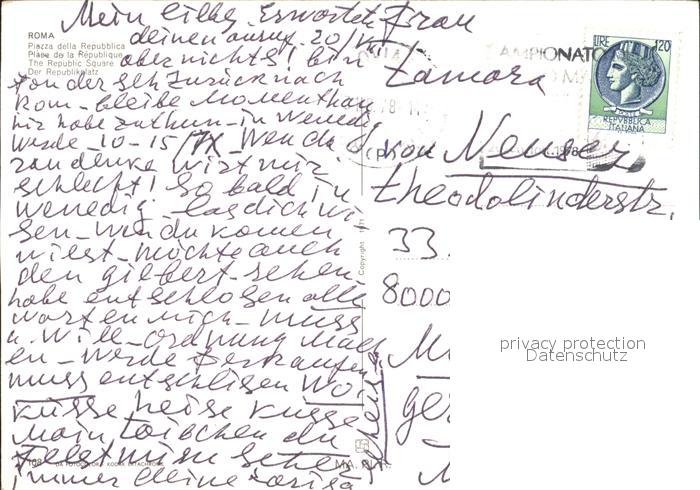 Mein lilbe, Erwortete
ROMA
Piazza della Repubblica
Place de la République
The Republic Square
Der Republikplatz
deinen anruf. 20/VII
aber nichts! bin
von der seh zurück nach
Rom – bleibe Momenthan
hir habe zuthun – in Wened
werde – 10–15/IX Wen da
zan denke wirt mir
schlecht! So bald in
wenedig – las dich wi
sen – wen du komen
wilst – möchte auch
den gilbert – sehen
habe entschlosen alle
warten mich – muss
u. will – ordnung mach
en – werde Ferkaufen
muss entschlisen wo
küsse heise küsse
main
du
immer deine
Frau
Zamora
von Neuser
theodolinderstr.
33
8000
LIRE 120
REPVBBLICA ITALIANA
AMPIONATO
Copyright
privacy protection
Datenschutz